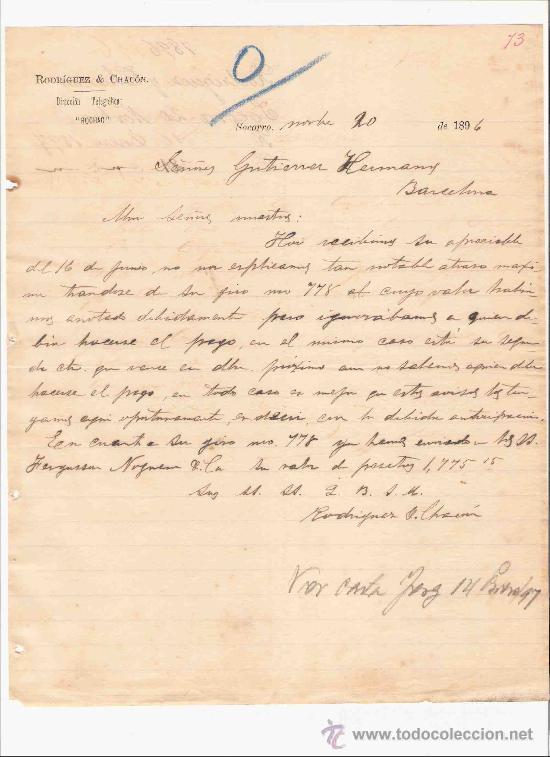 73
RODRÍGUEZ & CHACÓN.
Dirección Telegráfica:
Socorro, novbre 20 de 1896
Señores Gutierrez Hermanos
Barcelona
Muy señores nuestros:
Hoy recibimos su apreciable
del 16 de Junio, no nos esplicamos tan notable atraso maxi
me tratandose de su giro no 778 el cuyo valor habia
mos anotado debidamente pero ignorábamos a quien de
bia hacerse el pago, en el mismo caso está su segun
do que vence en dbre próximo aun no sabemos a quien debe
hacerse el pago, en todo caso es mejor que estos avisos los ten
gamos aqui oportunamente, es decir, con la debida anticipacion.
En cuanto a su giro no. 778 ya hemos enviado a los SS.
Fergusson Noguera & Ca su valor de pesetas 1,775 15
Sus SS. SS. Q. B. S. M.
Rodriguez & Chacón
Ver carta 14 97
todocoleccion
todocoleccion.net